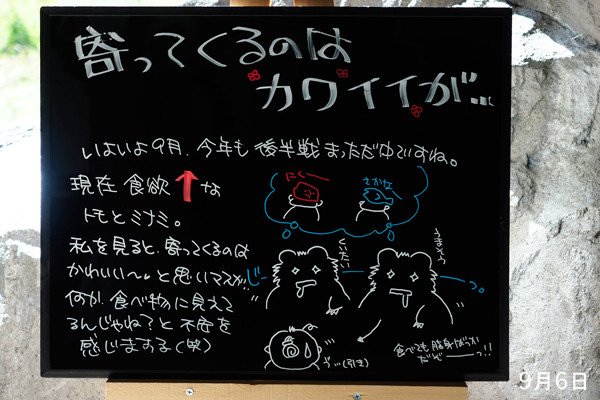 寄ってくるのは
カワイイが…
いよいよ9月、今年も後半戦まっただ中ですね。
現在 食欲↑な
トモとミナミ。
私を見ると、寄ってくるのは
かわいい〜。と思いマスが、
何か、食べ物に見えて
るんじゃね？と不安を
感じまする(笑)
にくー
さかなー
じー
くいたい
うまそう
っ。
(引き)
食べても脂身ばっか
だぞーーっ!!
9月6日